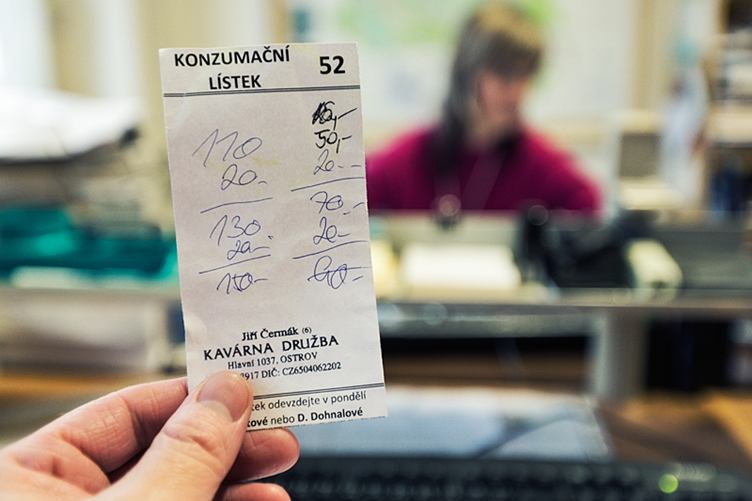 KONZUMAČNÍ 52
LÍSTEK
50,-
110 20.-
20.-
130. 70.-
20.- 20.-
150.- 90.-
Jiří Čermák (6)
KAVÁRNA DRUŽBA
Hlavní 1037, OSTROV
3917 DIČ: CZ6504062202
tek odevzdejte v pondělí
tové nebo D. Dohnalové